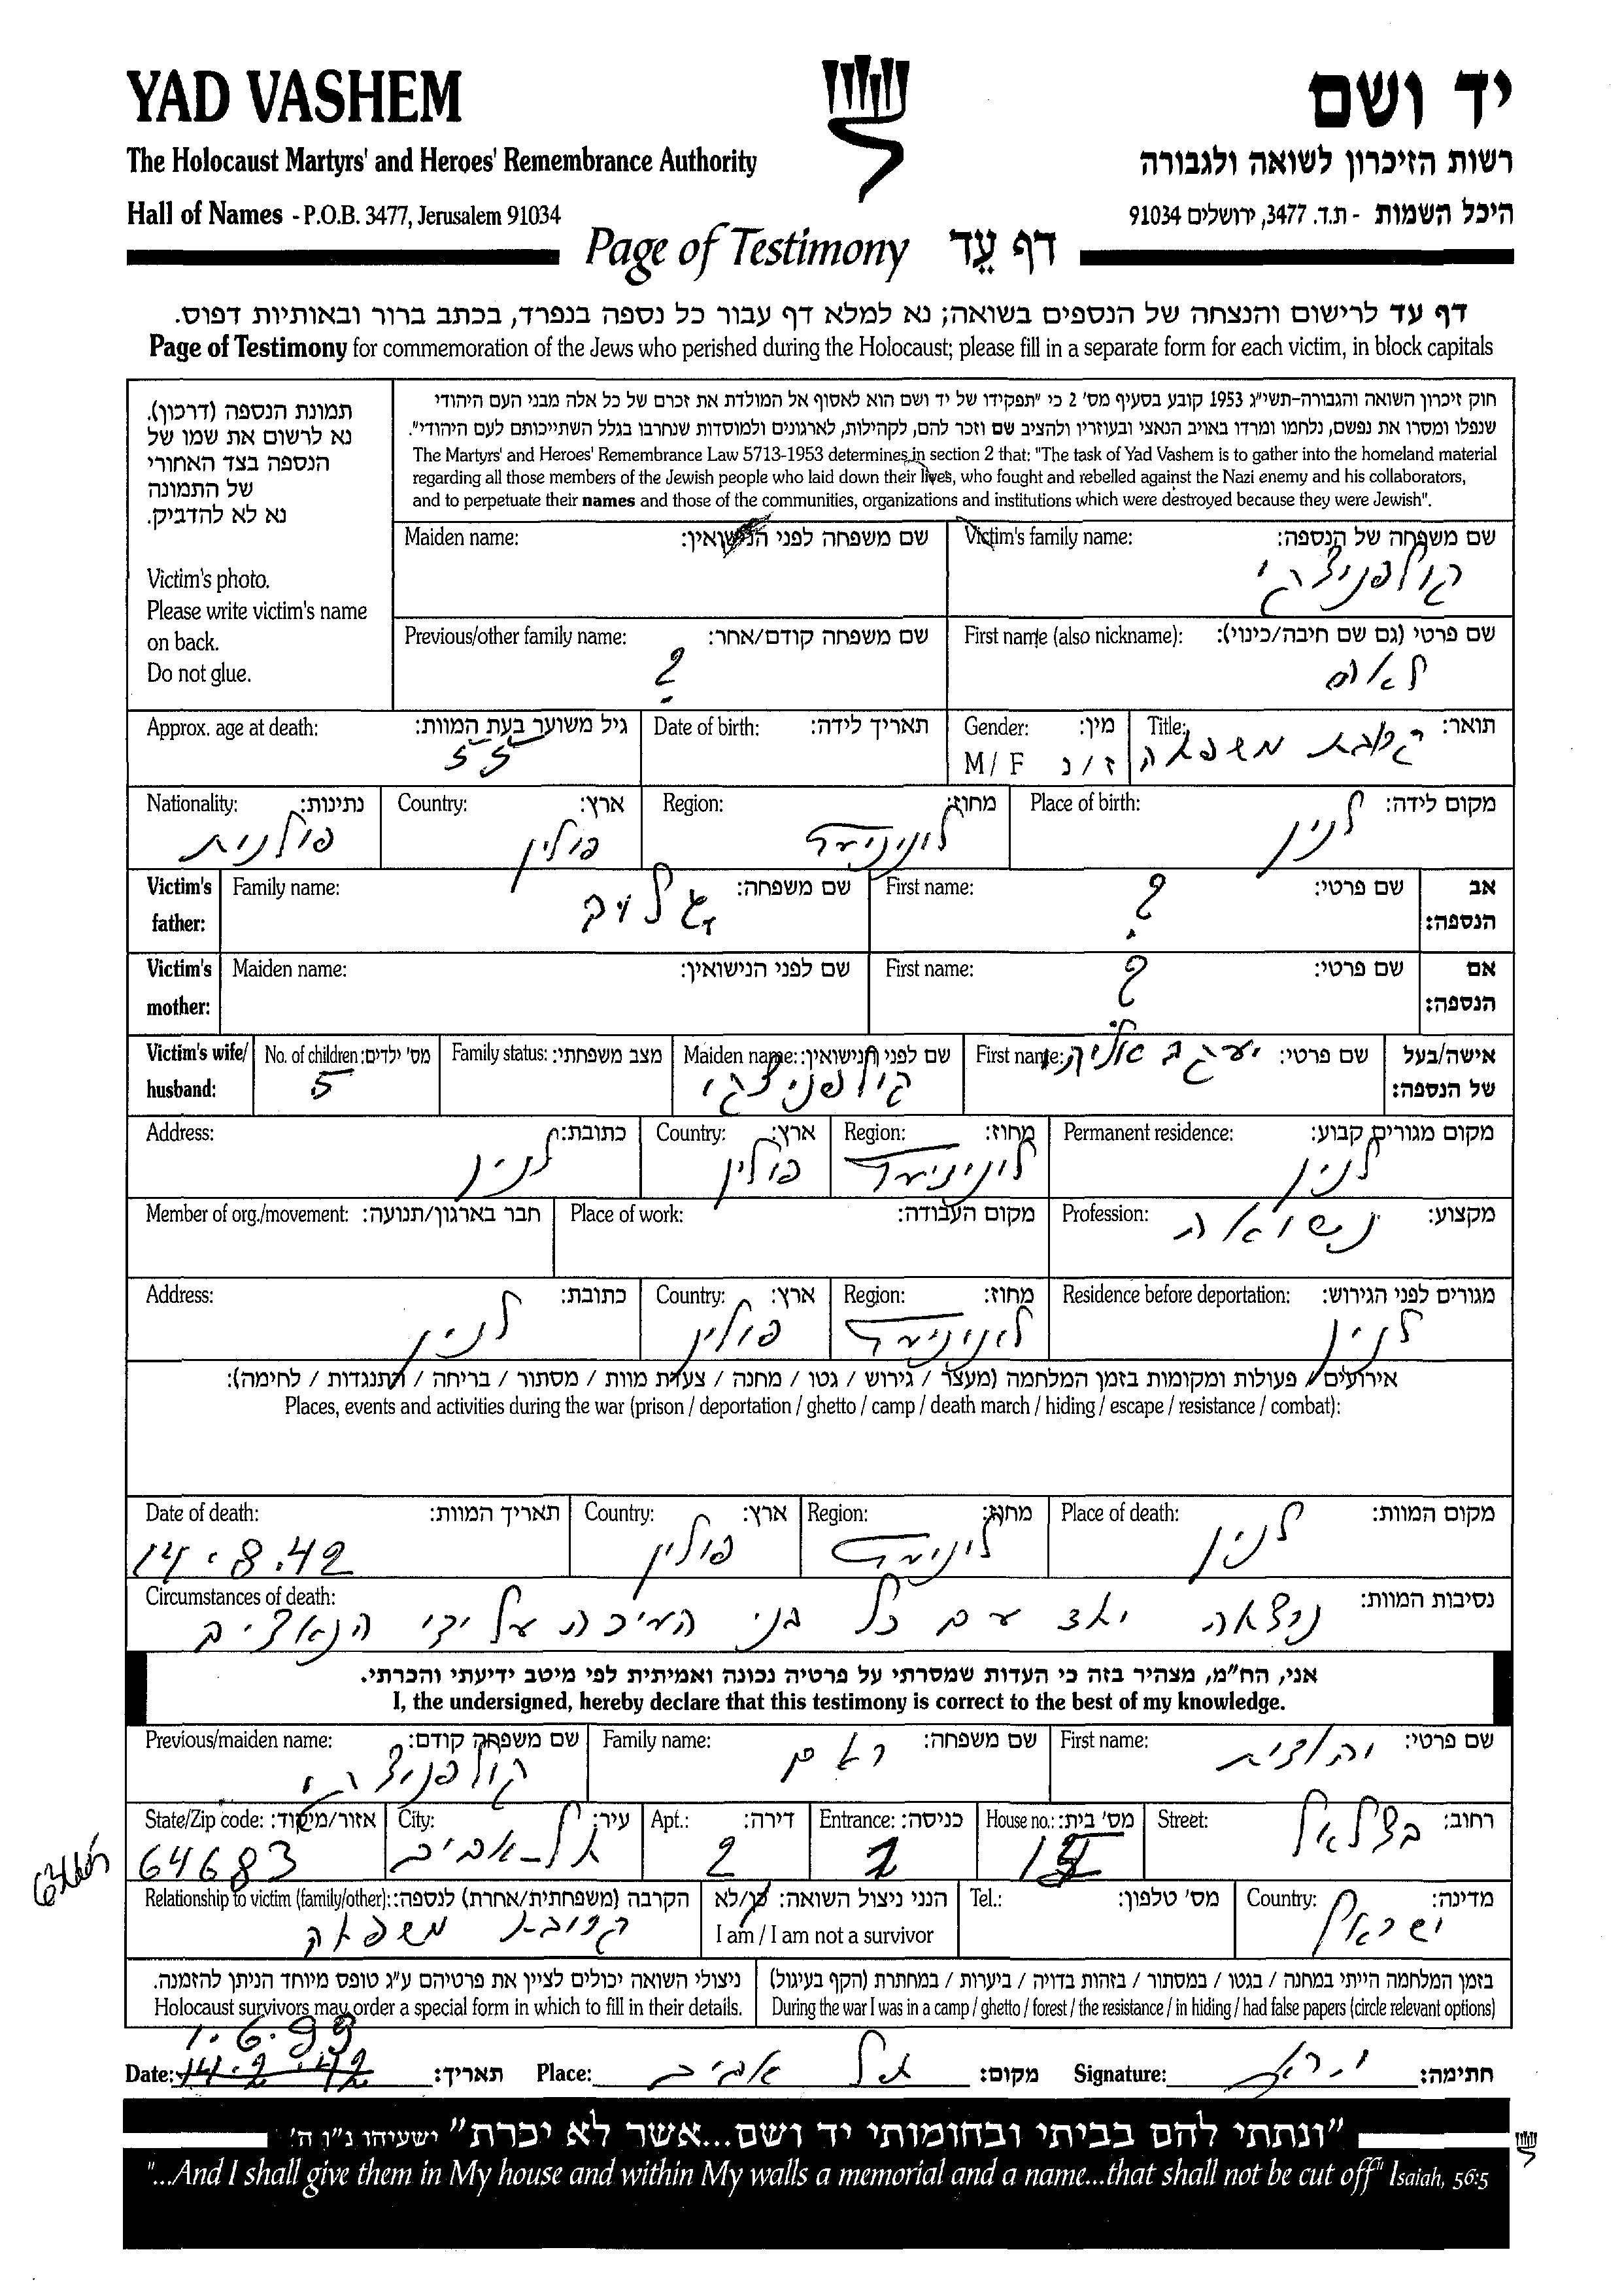 YAD VASHEM
יד ושם
The Holocaust Martyrs' and Heroes' Remembrance Authority
רשות הזיכרון לשואה ולגבורה
Hall of Names - P.O.B. 3477, Jerusalem 91034
היכל השמות - ת.ד. 3477, ירושלים 91034
Page of Testimony דף עֵד
דף עד לרישום והנצחה של הנספים בשואה; נא למלא דף עבור כל נספה בנפרד, בכתב ברור ובאותיות דפוס.
Page of Testimony for commemoration of the Jews who perished during the Holocaust; please fill in a separate form for each victim, in block capitals
תמונת הנספה (דרכון).
נא לרשום את שמו של
הנספה בצד האחורי
של התמונה
נא לא להדביק.
Victim's photo.
Please write victim's name
on back.
Do not glue.
חוק זיכרון השואה והגבורה-תשי"ג 1953 קובע בסעיף מס' 2 כי "תפקידו של יד ושם הוא לאסוף אל המולדת את זכרם של כל אלה מבני העם היהודי
שנפלו ומסרו את נפשם, נלחמו ומרדו באויב הנאצי ובעוזריו ולהציב שם וזכר להם, לקהילות, לארגונים ולמוסדות שנחרבו בגלל השתייכותם לעם היהודי".
The Martyrs' and Heroes' Remembrance Law 5713-1953 determines in section 2 that: "The task of Yad Vashem is to gather into the homeland material
regarding all those members of the Jewish people who laid down their lives, who fought and rebelled against the Nazi enemy and his collaborators,
and to perpetuate their names and those of the communities, organizations and institutions which were destroyed because they were Jewish".
שם משפחה של הנספה: Victim's family name:
שם משפחה לפני הנישואין: Maiden name:
שם פרטי (גם שם חיבה/כינוי): First name (also nickname):
שם משפחה קודם/אחר: Previous/other family name:
?
תואר: Title: קרובת משפחה
מין: Gender: ז / נ M / F
תאריך לידה: Date of birth:
גיל משוער בעת המוות: Approx. age at death:
55
מקום לידה: Place of birth: לנין
מחוז: Region: לוניניץ
ארץ: Country: פולין
נתינות: Nationality: פולנית
אב הנספה: Victim's father:
שם פרטי: First name: ?
שם משפחה: Family name:
אם הנספה: Victim's mother:
שם פרטי: First name: ?
שם לפני הנישואין: Maiden name:
אישה/בעל של הנספה: Victim's wife/ husband:
שם פרטי: First name: יעקב
שם לפני הנישואין: Maiden name:
מצב משפחתי: Family status:
מס' ילדים: No. of children: 5
מקום מגורים קבוע: Permanent residence: לנין
מחוז: Region: לוניניץ
ארץ: Country: פולין
כתובת: Address: לנין
מקצוע: Profession: נשואה
מקום העבודה: Place of work:
חבר בארגון/תנועה: Member of org./movement:
מגורים לפני הגירוש: Residence before deportation: לנין
מחוז: Region: לוניניץ
ארץ: Country: פולין
כתובת: Address: לנין
אירועים / פעולות ומקומות בזמן המלחמה (מעצר / גירוש / גטו / מחנה / צעדת מוות / מסתור / בריחה / התנגדות / לחימה):
Places, events and activities during the war (prison / deportation / ghetto / camp / death march / hiding / escape / resistance / combat):
מקום המוות: Place of death: לנין
מחוז: Region:
ארץ: Country: פולין
תאריך המוות: Date of death: 14.8.42
נסיבות המוות: Circumstances of death:
עם כל בני העיירה על ידי הנאצים
אני, הח"מ, מצהיר בזה כי העדות שמסרתי על פרטיה נכונה ואמיתית לפי מיטב ידיעתי והכרתי.
I, the undersigned, hereby declare that this testimony is correct to the best of my knowledge.
שם פרטי: First name: יהודית
שם משפחה: Family name: ראם
שם משפחה קודם: Previous/maiden name:
רחוב: Street: בצלאל
מס' בית: House no.:
כניסה: Entrance:
דירה: Apt.: 2
עיר: City: תל-אביב
אזור/מיקוד: State/Zip code: 64683
מדינה: Country: ישראל
מס' טלפון: Tel.:
הנני ניצול השואה: כן/לא
I am / I am not a survivor
הקרבה (משפחתית/אחרת) לנספה: Relationship to victim (family/other):
קרובת משפחה
בזמן המלחמה הייתי במחנה / בגטו / במסתור / בזהות בדויה / ביערות / במחתרת (הקף בעיגול)
During the war I was in a camp / ghetto / forest / the resistance / in hiding / had false papers (circle relevant options)
ניצולי השואה יכולים לציין את פרטיהם ע"ג טופס מיוחד הניתן להזמנה.
Holocaust survivors may order a special form in which to fill in their details.
1.6.99
חתימה: Signature:
מקום: Place: תל אביב
תאריך: Date:
"ונתתי להם בביתי ובחומותי יד ושם...אשר לא יכרת" ישעיהו נ"ו ה'
"...And I shall give them in My house and within My walls a memorial and a name...that shall not be cut off" Isaiah, 56:5